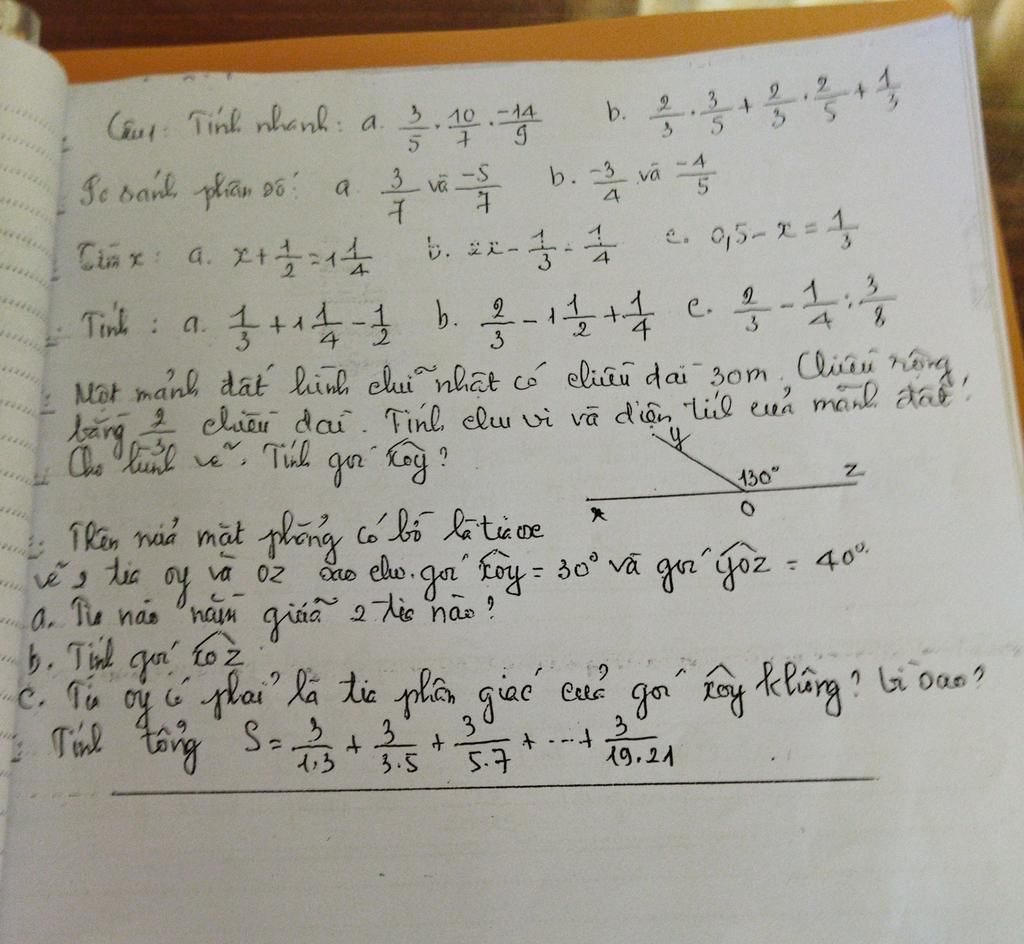 Câu 1: Tính nhanh: a. 3/5 . 10/7 . -14/9 b. 2/3 . 3/5 + 2/3 . 2/5 + 1/3
So sánh phân số: a 3/7 và -5/7 b. -3/4 và -4/5
Tìm x: a. x + 1/2 = 1 1/4 b. 2x - 1/3 = 1/4 c. 0,5 - x = 1/3
Tính: a. 1/3 + 1 1/4 - 1/2 b. 2/3 - 1 1/2 + 1/4 c. 2/3 - 1/4 : 3/8
Một mảnh đất hình chữ nhật có chiều dài 30m. Chiều rộng
bằng 2/3 chiều dài. Tính chu vi và diện tích của mảnh đất.
Cho hình vẽ. Tính góc xOy?
y 130° z
x O
Trên nửa mặt phẳng có bờ là tia ox
vẽ 2 tia oy và oz sao cho góc xoy = 30° và góc yoz = 40°.
a. Tia nào nằm giữa 2 tia nào?
b. Tính góc xoz
c. Tia oy có phải là tia phân giác của góc xoy không? Vì sao?
Tính tổng S = 3/1.3 + 3/3.5 + 3/5.7 + ... + 3/19.21